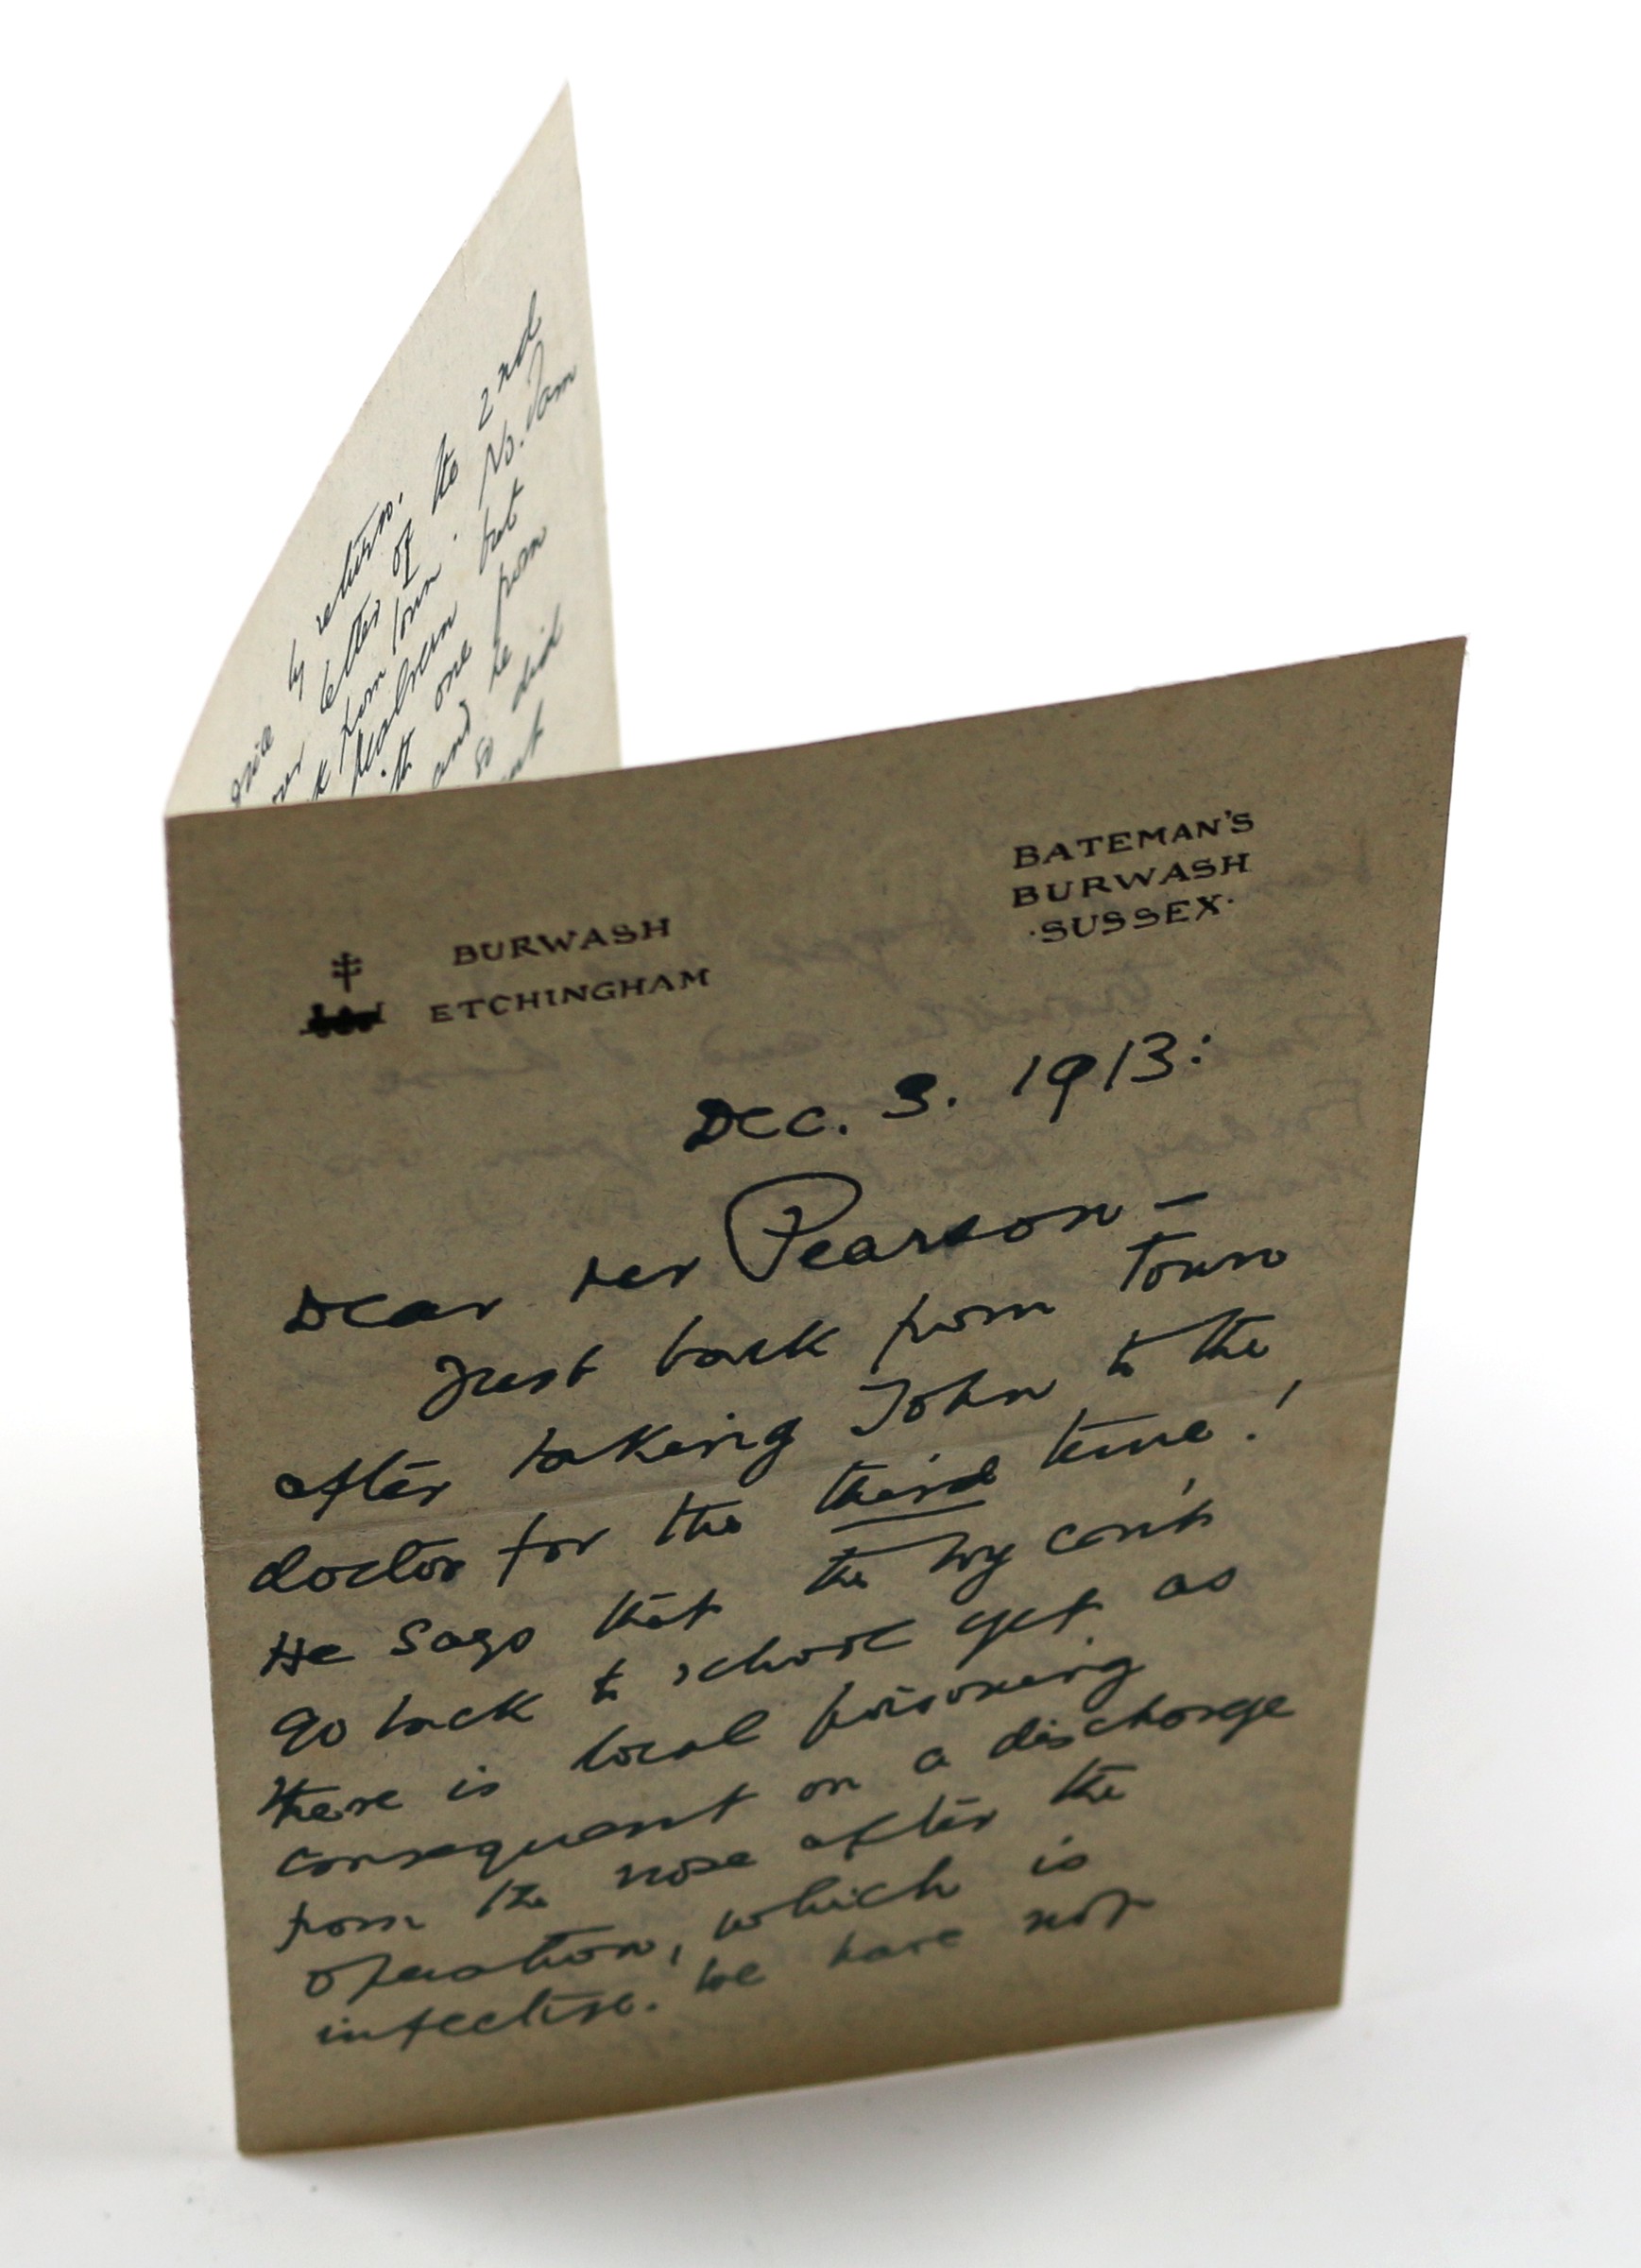 BATEMAN'S
BURWASH
·SUSSEX·
BURWASH
ETCHINGHAM
Dec. 3. 1913:
Dear Mr Pearson —
Just back from Town
after taking John to the
doctor for the third time!
He says that the boy can't
go back to school yet as
there is local poisoning
consequent on a discharge
from the nose after the
operation, which is
infective. We have not
by return.
letter of the 2nd
from town. No.
but
one
and he from
so did